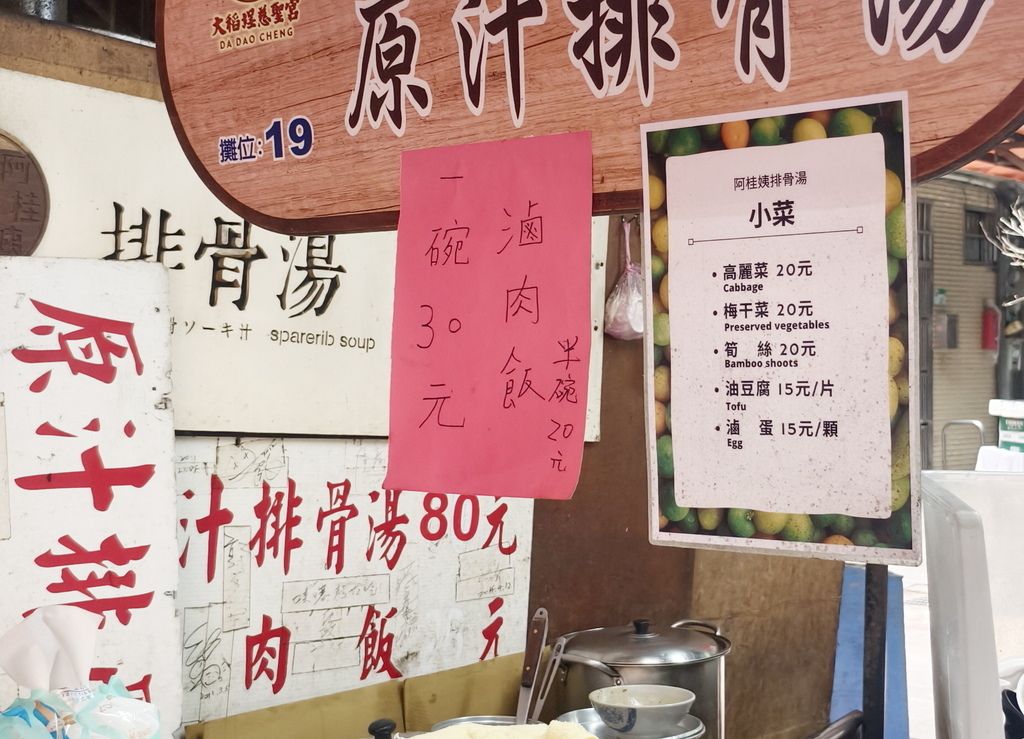 大稻埕慈聖宮
DA DAO CHENG
原汁排骨湯
攤位:19
阿桂
排骨湯
ソーキ汁 sparerib soup
滷肉飯
半碗20元
一碗30元
阿桂姨排骨湯
小菜
• 高麗菜 20元
Cabbage
• 梅干菜 20元
Preserved vegetables
• 筍 絲 20元
Bamboo shoots
• 油豆腐 15元/片
Tofu
• 滷 蛋 15元/顆
Egg
原汁排
汁排骨湯80元
肉飯 元